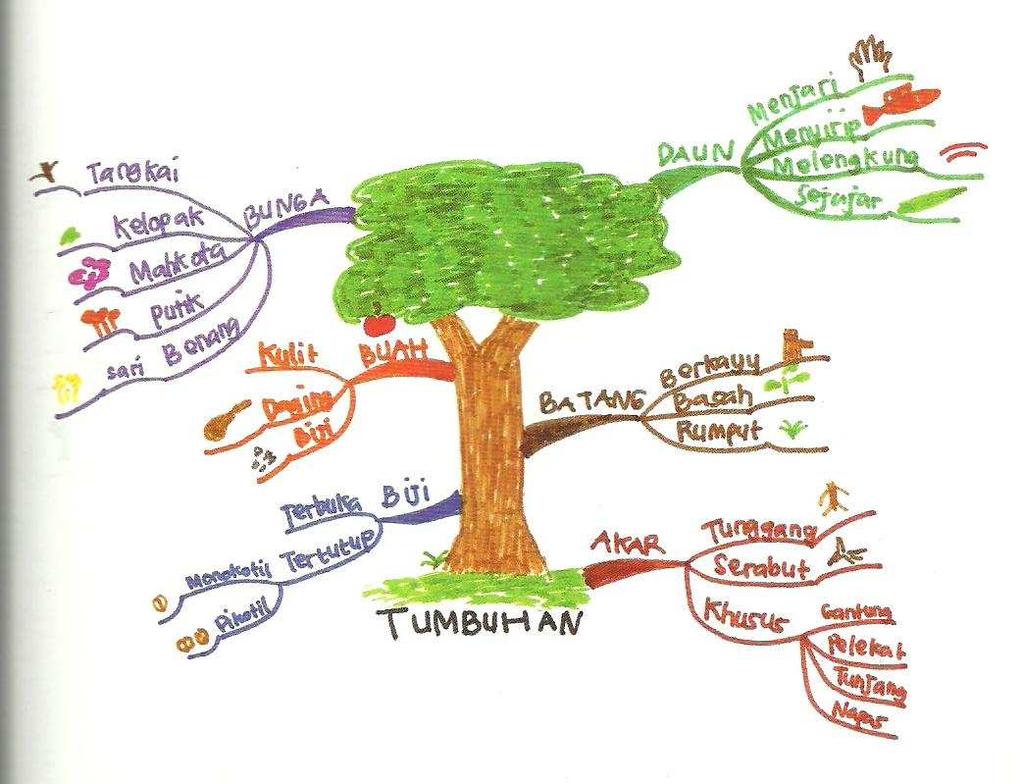 BUNGA
Tangkai
Kelopak
Mahkota
Putik
Sari Benang
DAUN
Menjari
Menyirip
Melengkung
Sejajar
BUAH
Kulit
Daging
Biji
BATANG
Berkayu
Basah
Rumput
BIJI
Terbuka
Tertutup
Monokotil
Dikotil
AKAR
Tunggang
Serabut
Khusus
Gantung
Pelekat
Tunjang
Napas
TUMBUHAN